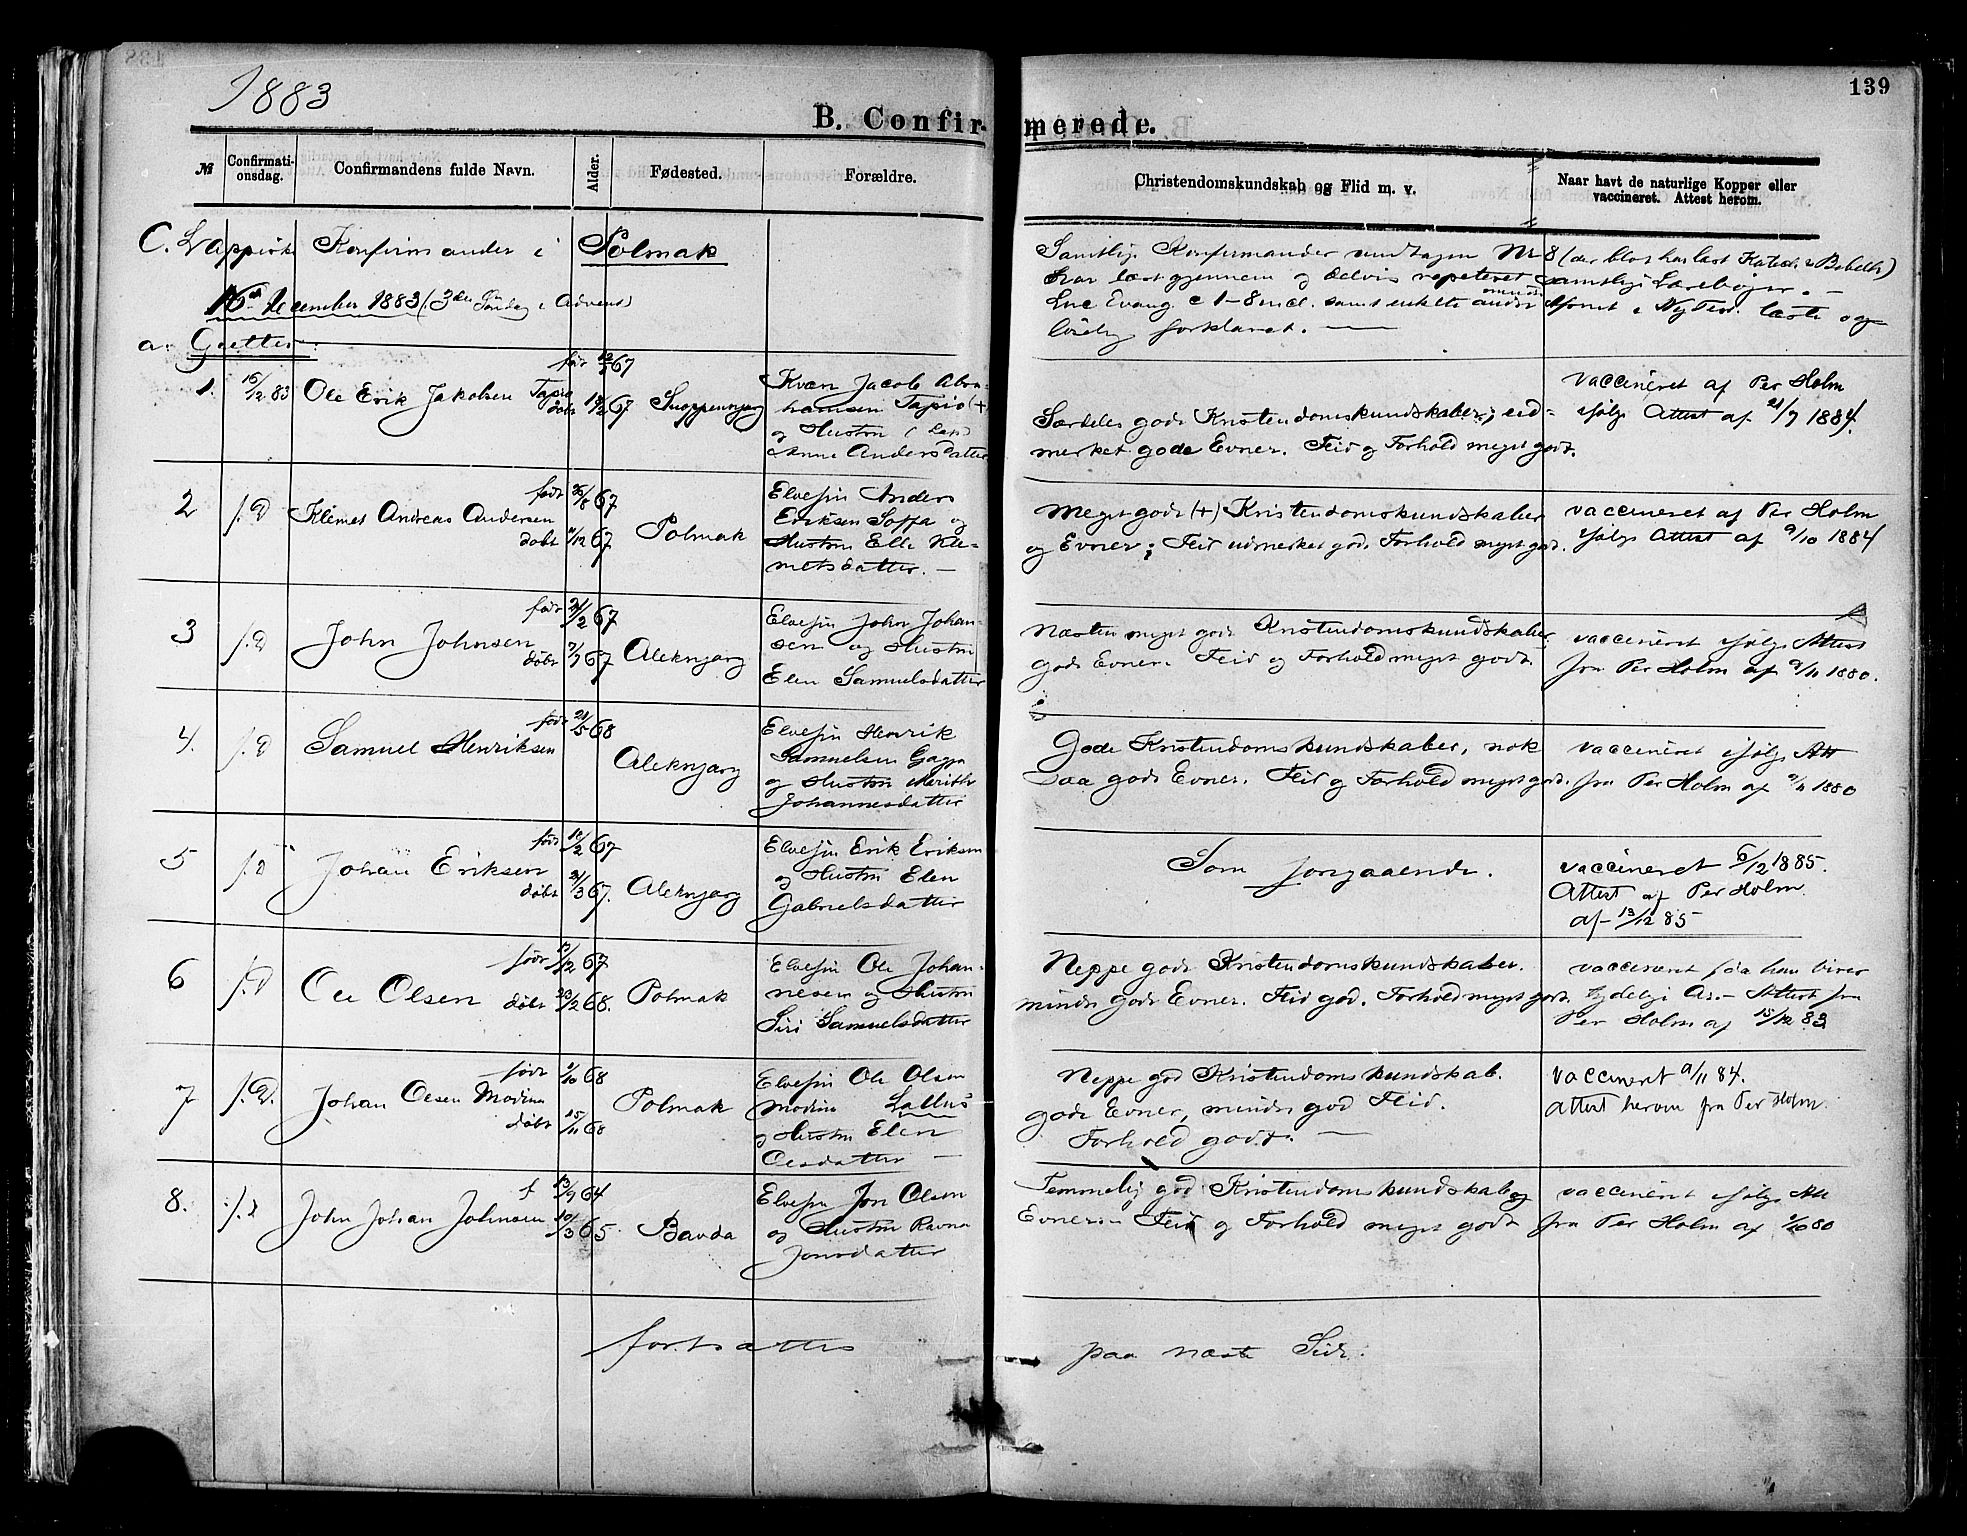 1883
139
B. Confirmerede.
№
Confirmationsdag.
Confirmandens fulde Navn.
Alder.
Fødested.
Forældre.
Christendomskundskab og Flid m. v.
Naar havt de naturlige Kopper eller
vaccineret. Attest herom.
C. Lappiske Konfirmander i Polmak
16de December 1883 (3die Søndag i Advent)
a. Gutter:
Samtlige Konfirmander undtagen Nr 8 (der blot har læst Katech. & Bibelh.)
har læst gjennem og delvis repeteret samtlige Lærebøger. —
Luc Evang. c 1-8 incl. samt enkelte andre i Ny Test. læste og
forklaret. —
1. 16/12 83 Ole Erik Jakobsen Tapio
født 67
døbt 67
Kvæn Jacob Abra-
hamsen Tapio (+)
og Hustru (Lap)
Anne Andersdatter
Særdeles gode Kristendomskundskaber; ud-
merket gode Evner. Flid og Forhold meget godt.
vaccineret af Per Holm
ifølge Attest af 21/7 1884.
2 f. D Klemet Andreas Andersen
født 67
døbt 67
Polmak
Elvefin Anders
Eriksen Soffa og
Hustru Elle Kle-
metsdatter. —
Meget gode (+) Kristendomskundskaber
og Evner; Flid udmerket god. Forhold meget god.
vaccineret af Per Holm
ifølge Attest af 9/10 1884
3 f. D John Johnsen
født 67
døbt 67
Aleknjarg
Elvefin John Johan-
sen og Hustru
Elen Samuelsdatter
Næsten meget gode Kristendomskundskaber,
gode Evner. Flid og Forhold meget godt.
vaccineret ifølge Attest
fra Per Holm af 9/11 1880.
4. f. D Samuel Henriksen
født 68
Aleknjarg
Elvefin Henrik
Samuelsen Gappa
og Hustru Marith
Johannesdatter
Gode Kristendomskundskaber, nok
saa gode Evner. Flid og Forhold meget god.
vaccineret ifølge Att
fra Per Holm af 9/11 1880
5 f. D Johan Eriksen
født 67
døbt 67.
Aleknjarg
Elvefin Erik Eriksen
og Hustru Elen
Gabrielsdatter
Som forgaaende.
vaccineret 6/12 1885.
Attest af Per Holm
af 13/12 85
6 f. D Ole Olsen
født 67
døbt 68.
Polmak
Elvefin Ole Johan-
nesen og Hustru
Siri Samuelsdatter
Neppe gode Kristendomskundskaber.
mindre gode Evner. Flid god. Forhold meget godt.
vaccineret
tydelige Ar. — Attest fra
Per Holm af 15/12 83
7 f. D. Johan Olsen Modina
født 68
døbt 15/11 68
Polmak
Elvefin Ole Olsen
Modina Lallus
og Hustru Elen
Olsdatter —
Neppe god Kristendomskundskab.
gode Evner, mindre god Flid.
Forhold godt. —
vaccineret 9/11 84.
Attest herom fra Per Holm.
8. f. D John Johan Johnsen
f 13/9 64
10/3 65.
Bavda
Elvefin Jon Olsen
og Hustru Ravna
Jonsdatter
Temmelig god Kristendomskundskab og
Evner. — Flid og Forhold meget godt
vaccineret ifølge Att
fra Per Holm af 80
fortsættes paa næste Side.